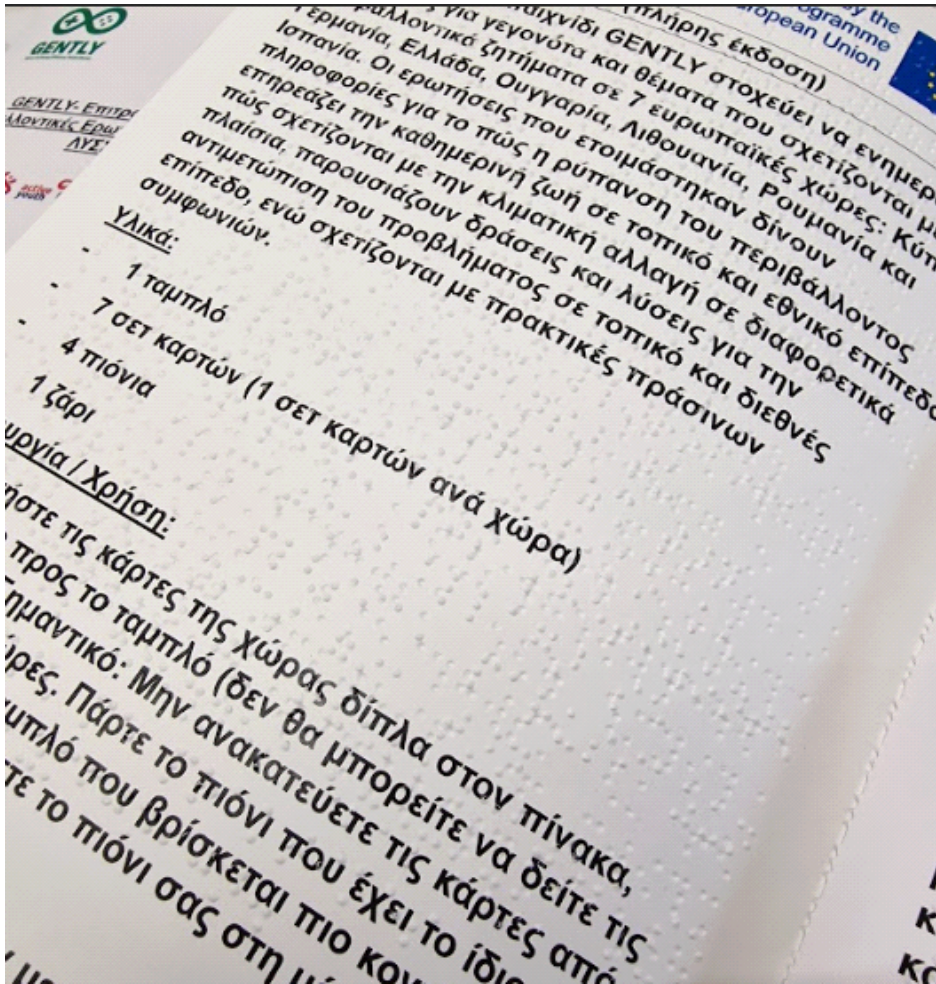 GENTLY
GENTLY- Επιτρα
active
youth
by the
ogramme
European Union
(πλήρης έκδοση)
παιχνίδι GENTLY στοχεύει να ενημερώ
ς για γεγονότα και θέματα που σχετίζονται με
βαλλοντικά ζητήματα σε 7 ευρωπαϊκές χώρες: Κύπ
Γερμανία, Ελλάδα, Ουγγαρία, Λιθουανία, Ρουμανία και
Ισπανία. Οι ερωτήσεις που ετοιμάστηκαν δίνουν
πληροφορίες για το πώς η ρύπανση του περιβάλλοντος
επηρεάζει την καθημερινή ζωή σε τοπικό και εθνικό επίπεδο
πώς σχετίζονται με την κλιματική αλλαγή σε διαφορετικά
πλαίσια, παρουσιάζουν δράσεις και λύσεις για την
αντιμετώπιση του προβλήματος σε τοπικό και διεθνές
επίπεδο, ενώ σχετίζονται με πρακτικές πράσινων
συμφωνιών.
Υλικά:
- 1 ταμπλό
- 7 σετ καρτών (1 σετ καρτών ανά χώρα)
- 4 πιόνια
1 ζάρι
ουργία / Χρήση:
ήστε τις κάρτες της χώρας δίπλα στον πίνακα,
προς το ταμπλό (δεν θα μπορείτε να δείτε τις
Σημαντικό: Μην ανακατεύετε τις κάρτες από
ώρες. Πάρτε το πιόνι που έχει το ίδιο
αμπλό που βρίσκεται πιο κον
τε το πιόνι σας στη
με